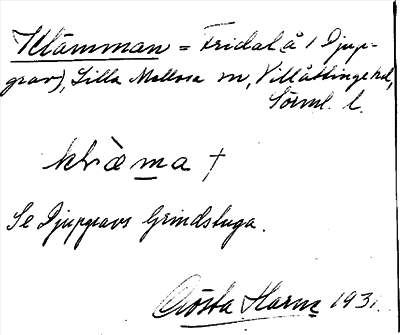 Klämman = Fridal å (Djup-
grav), Lilla Mellösa sn, Villåttinge hd,
Sörml. l.
klæ̀ma †
Se Djupgravs Grindstuga.
Gösta Harm 1931.